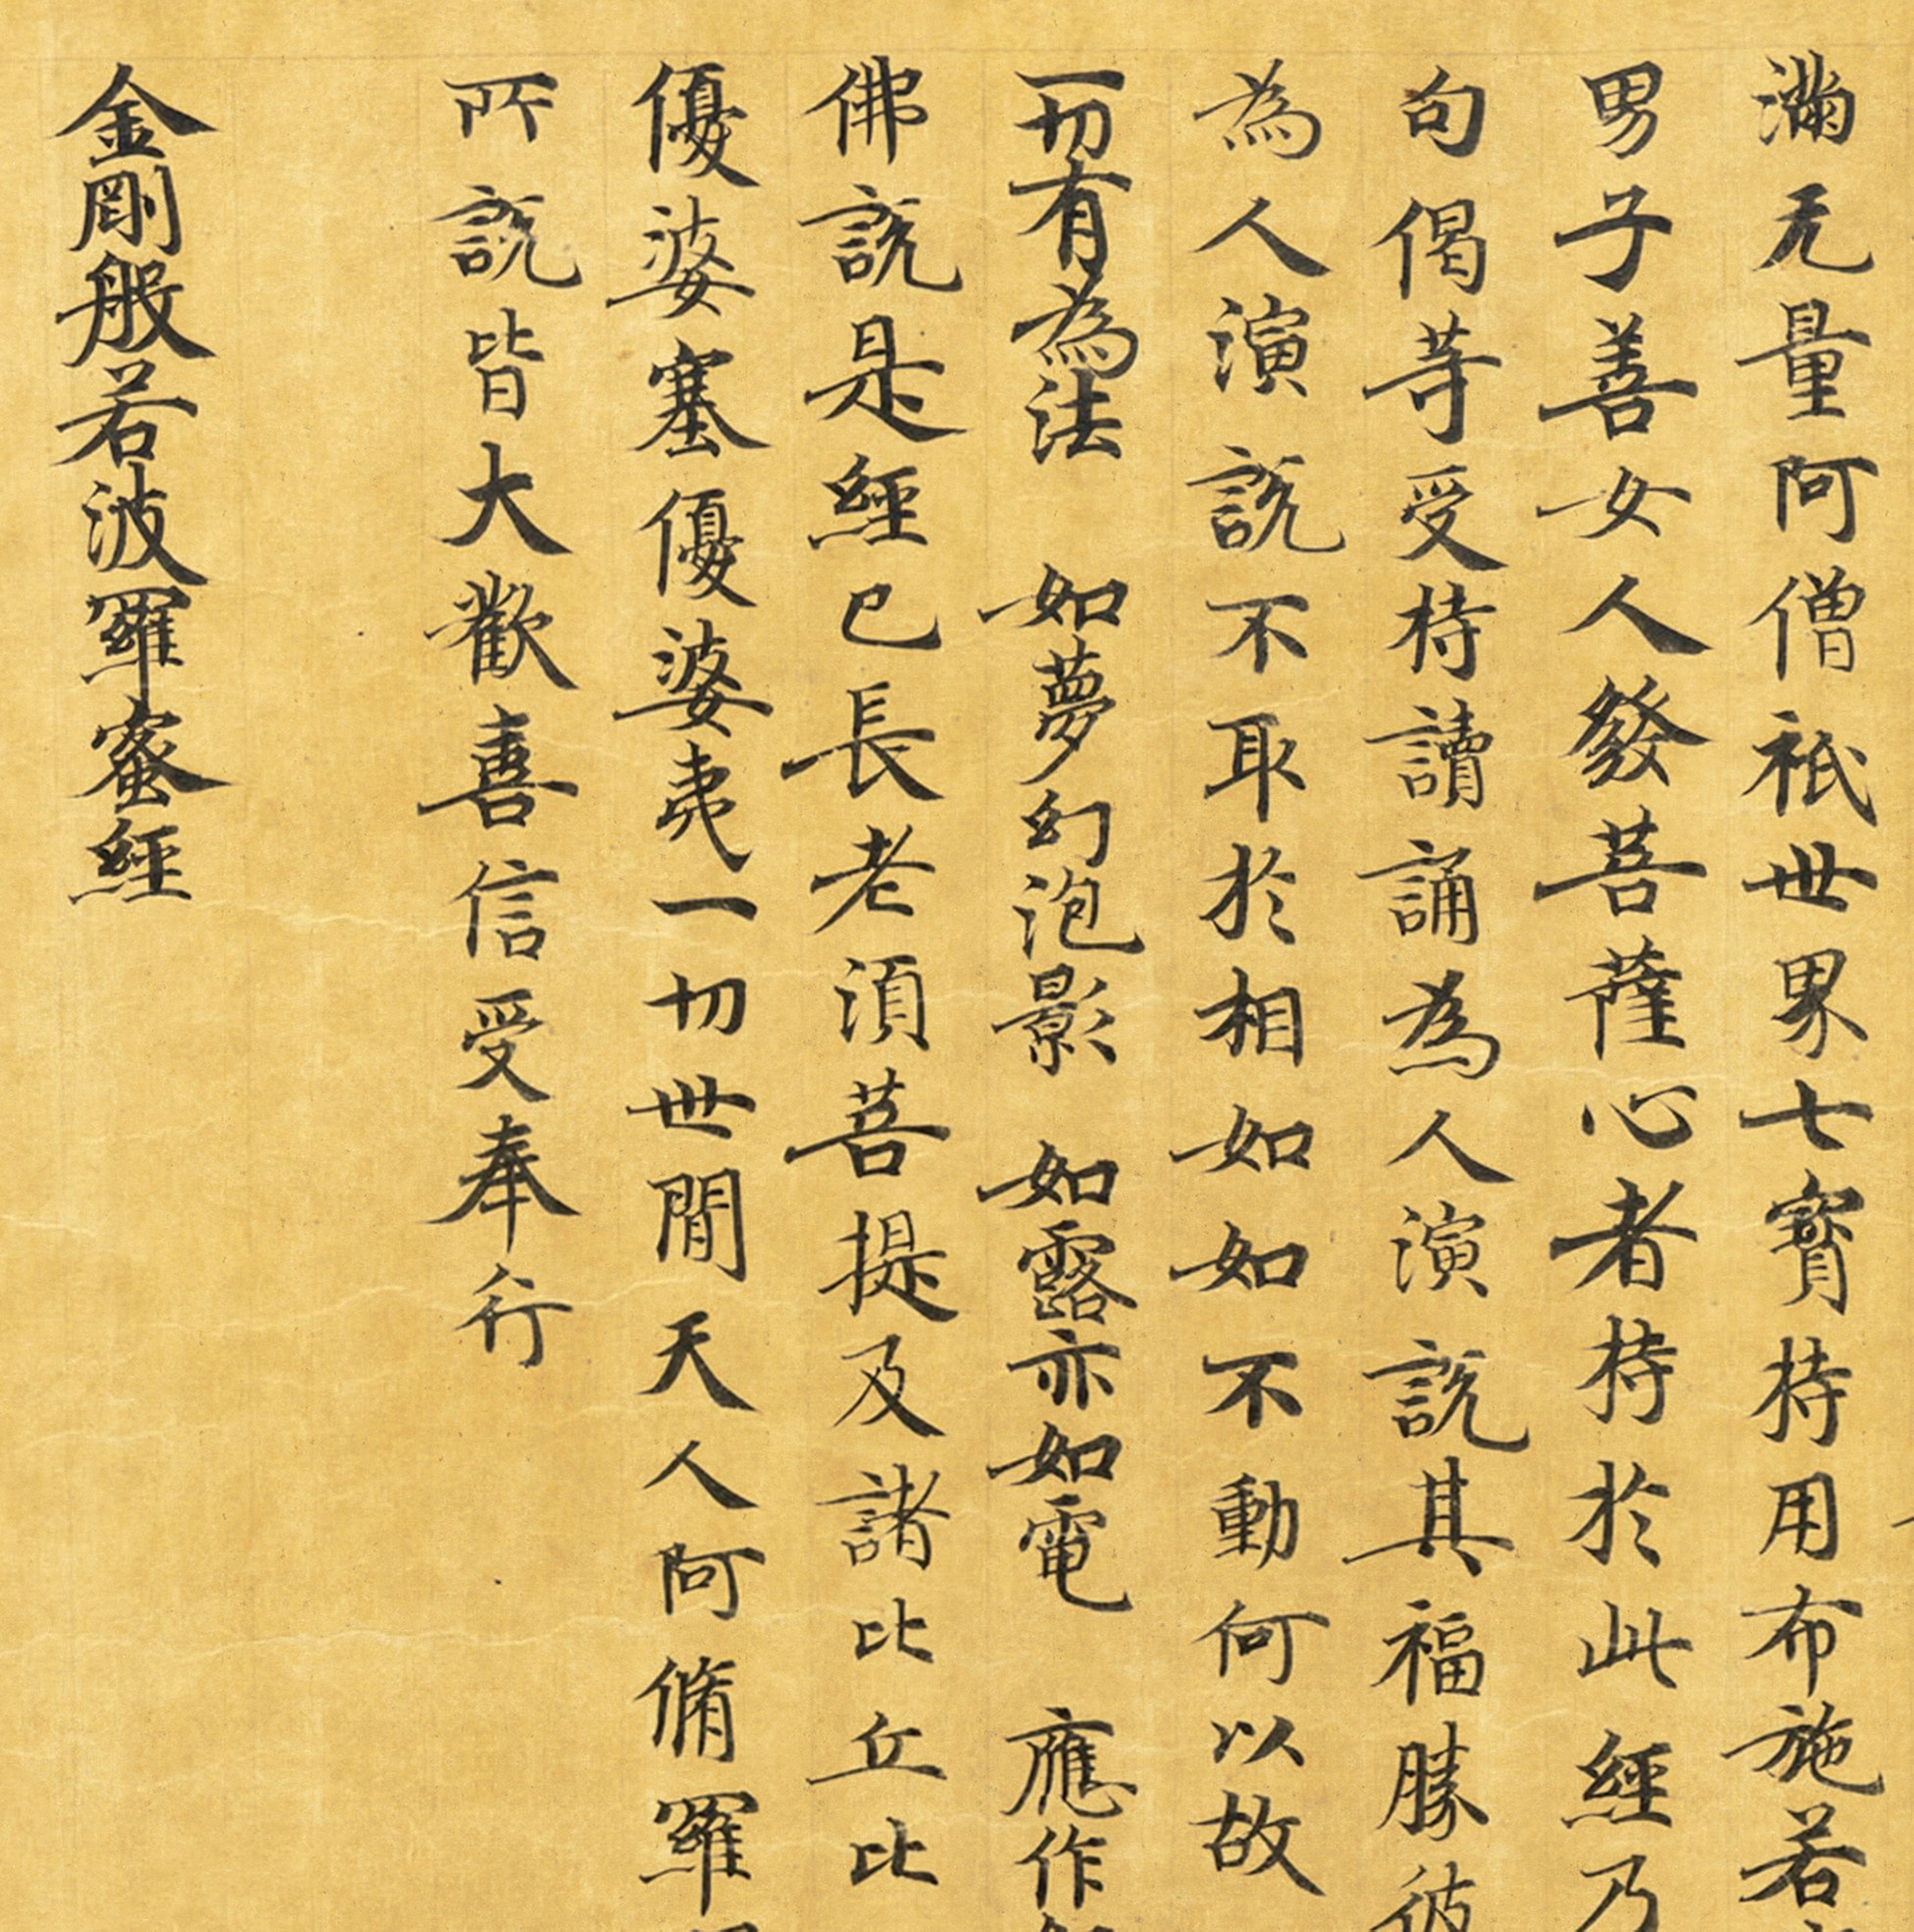 滿无量阿僧祇世界七寶持用布施若
男子善女人發菩薩心者持於此經乃
句偈等受持讀誦為人演說其福勝彼
為人演說不取於相如如不動何以故
一切有為法 如夢幻泡影 如露亦如電 應作
佛說是經已長老須菩提及諸比丘比
優婆塞優婆夷一切世閒天人阿脩羅
所說皆大歡喜信受奉行
金剛般若波羅蜜經